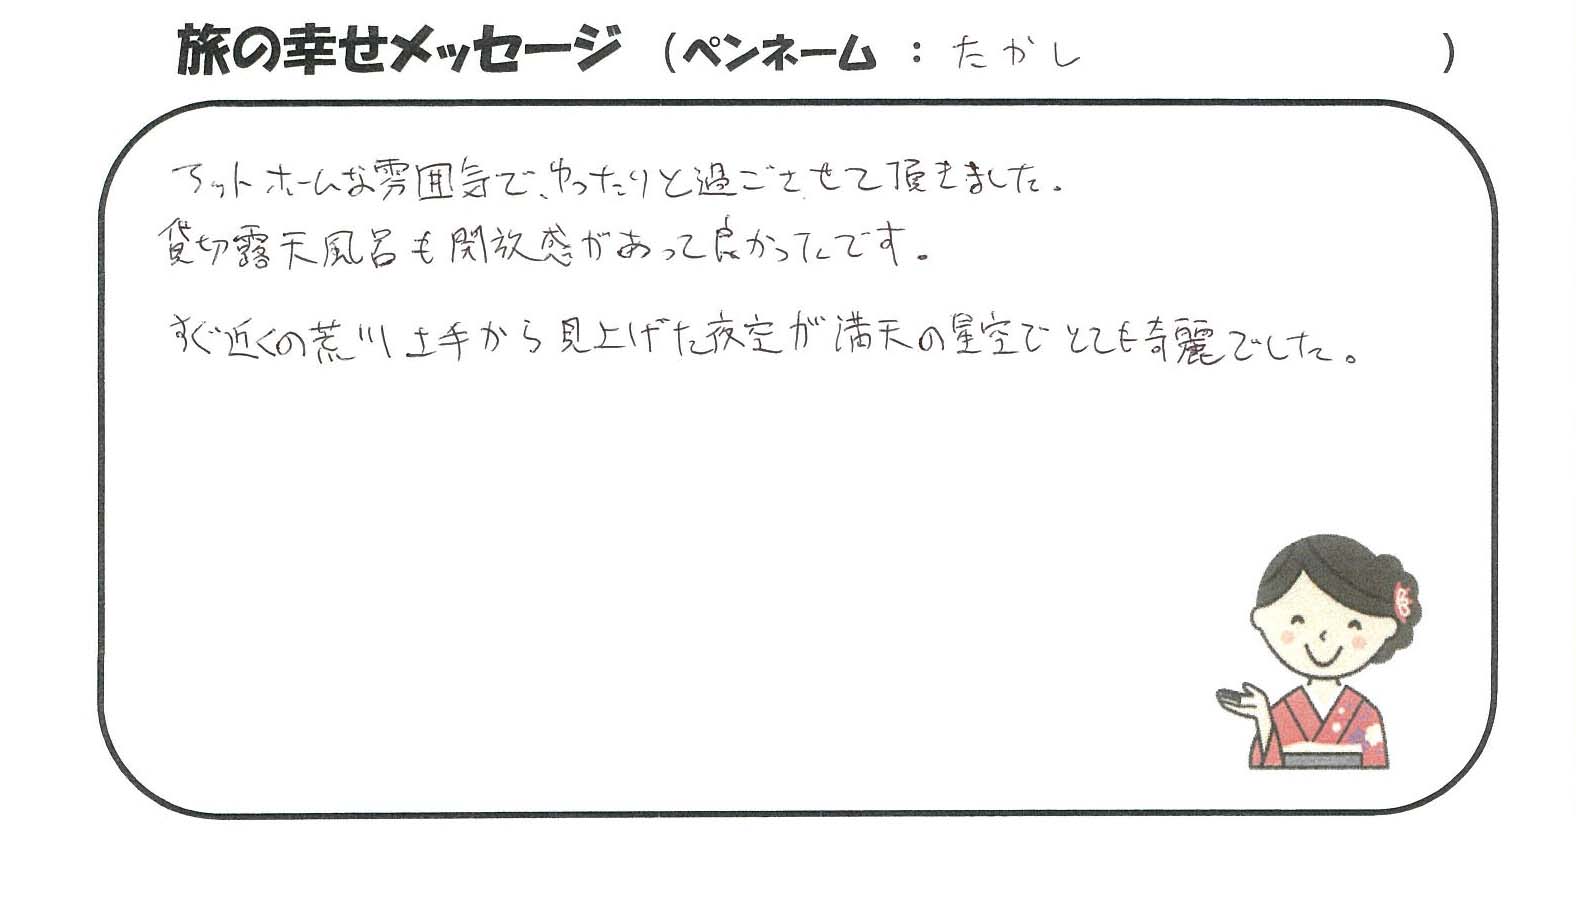 旅の幸せメッセージ （ペンネーム ： たかし ）
アットホームな雰囲気で、ゆったりと過ごさせて頂きました。
貸切露天風呂も開放感があって良かったです。
すぐ近くの荒川土手から見上げた夜空が満天の星空でとても奇麗でした。